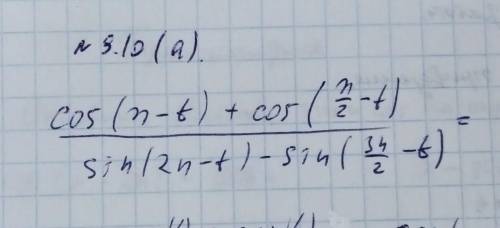 № 9.10 (а).
cos(π-t) + cos(π/2-t)
sin(2π-t) - sin(3π/2-t) =